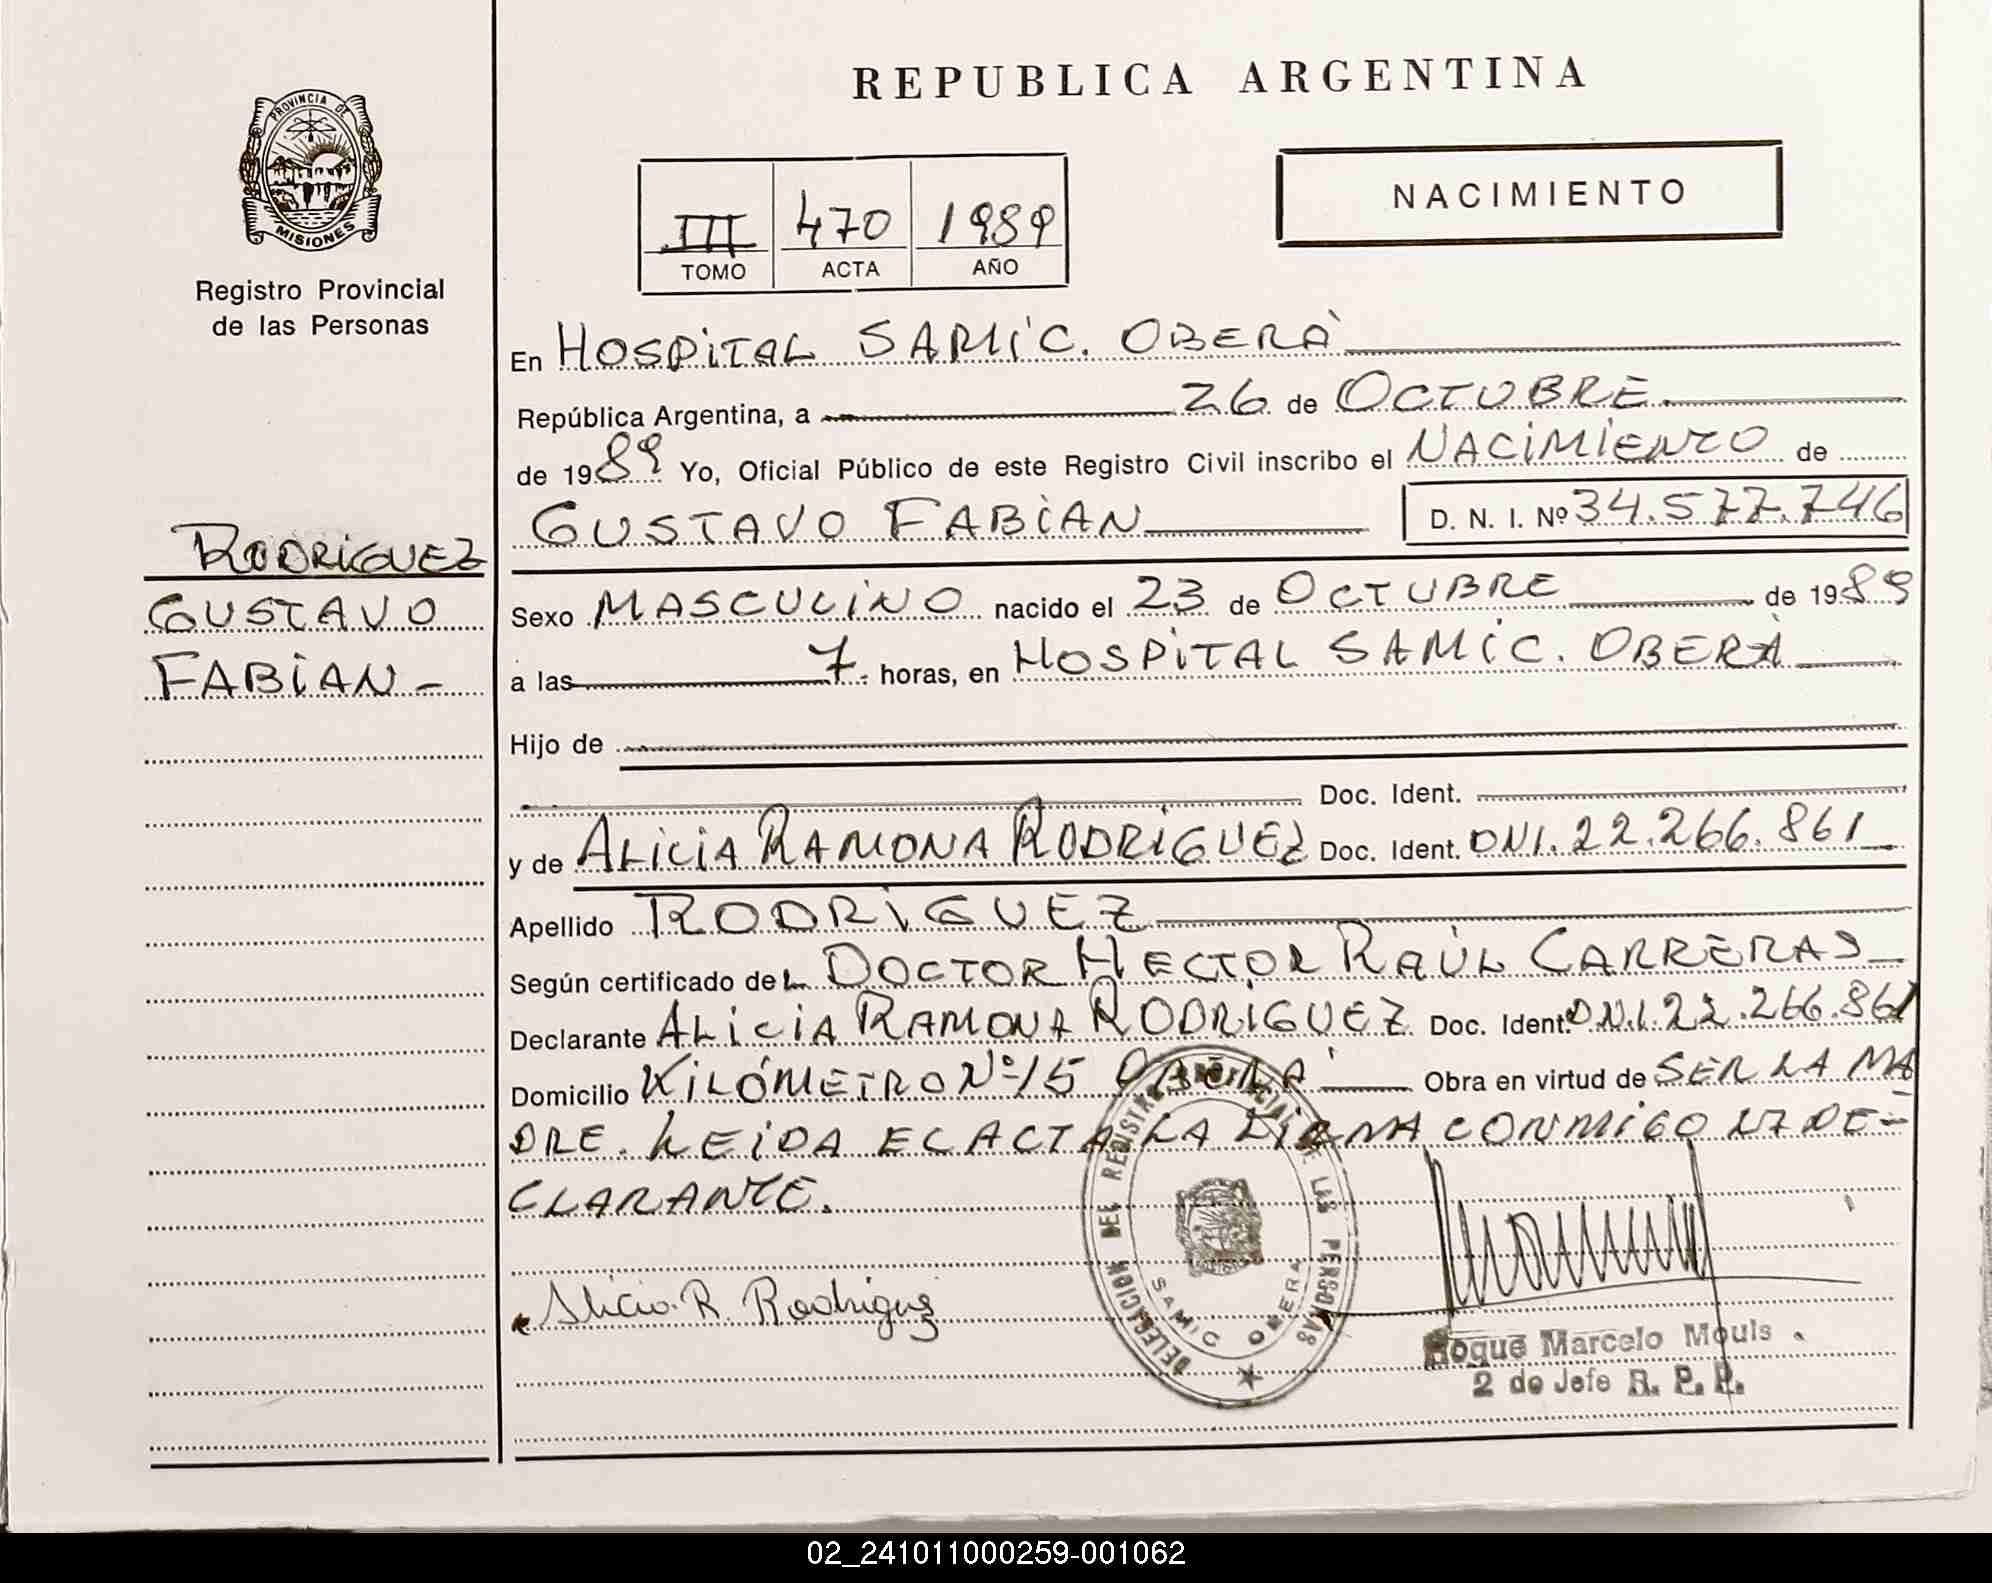 REPUBLICA ARGENTINA
PROVINCIA DE
MISIONES
Registro Provincial
de las Personas
III 470 1989
TOMO ACTA AÑO
NACIMIENTO
RODRIGUEZ
GUSTAVO
FABIAN -
En HOSPITAL SAMIC. OBERÁ
República Argentina, a 26 de OCTUBRE
de 1989 Yo, Oficial Público de este Registro Civil inscribo el NACIMIENTO de
GUSTAVO FABIAN D. N. I. Nº 34.577.746
Sexo MASCULINO nacido el 23 de OCTUBRE de 1989
a las 7. horas, en HOSPITAL SAMIC. OBERÁ
Hijo de
Doc. Ident.
y de ALICIA RAMONA RODRIGUEZ Doc. Ident. DNI. 22.266.861
Apellido RODRIGUEZ
Según certificado deL DOCTOR HECTOR RAÚL CARRERAS
Declarante ALICIA RAMONA RODRIGUEZ Doc. Ident. DNI. 22.266.861
Domicilio KILÓMETRO Nº 15 OBERÁ Obra en virtud de SER LA MA
DRE. LEIDA EL ACTA LA FIRMA CONMIGO LA DE-
CLARANTE.
Alicia R. Rodriguez
DELEGACION DEL REGISTRO PROVINCIAL DE LAS PERSONAS
SAMIC OBERA
Roque Marcelo Mouls
2 do Jefe R. P. P.
02_241011000259-001062